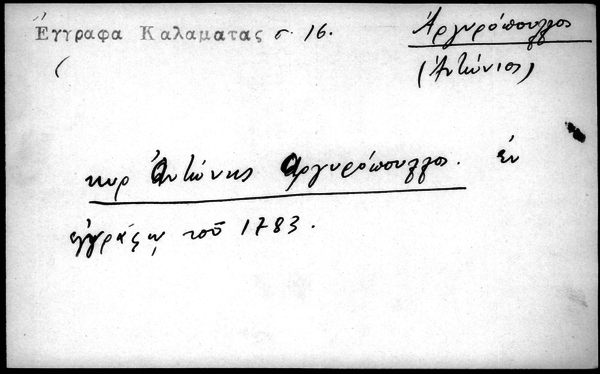 Ἔγγραφα Καλαματας σ. 16.
Ἀργυρόπουλλος
(Ἀντώνιος)
κυρ Ἀντώνης Ἀργυρόπουλλος. ἐν
ἐγγράφῳ τοῦ 1783.